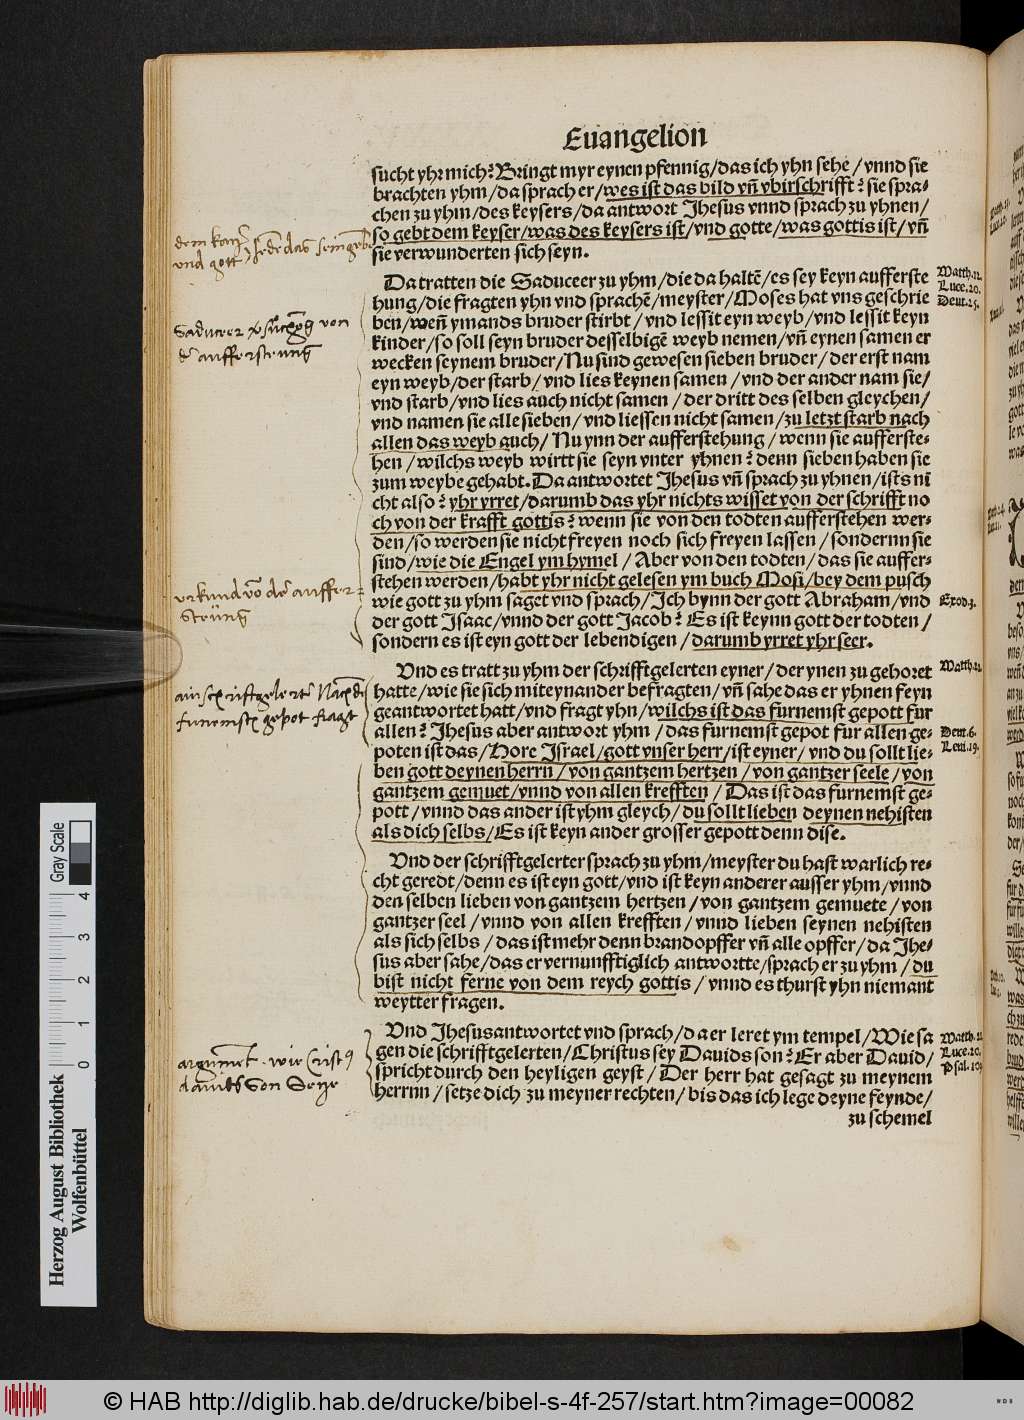 Euangelion
sucht yhr mich? Bringt myr eynen pfennig/das ich yhn sehe/vnnd sie
brachten yhm/da sprach er/wes ist das bild vñ vbirschrifft? sie spra-
chen zu yhm/des keysers/da antwort Jhesus vnnd sprach zu yhnen/
so gebt dem keyser/was des keysers ist/vnd gotte/was gottis ist/vñ
sie verwunderten sich seyn.
Da tratten die Saduceer zu yhm/die da haltē/es sey keyn aufferste
hung/die fragten yhn vnd sprachē/meyster/Moses hat vns geschrie
ben/weñ ymands bruder stirbt/vnd lessit eyn weyb/vnd lessit keyn
kinder/so soll seyn bruder desselbigē weyb nemen/vñ eynen samen er
wecken seynem bruder/Nu sind gewesen sieben bruder/der erst nam
eyn weyb/der starb/vnd lies keynen samen/vnd der ander nam sie/
vnd starb/vnd lies auch nicht samen/der dritt des selben gleychen/
vnd namen sie alle sieben/vnd liessen nicht samen/zu letzt starb nach
allen das weyb auch/Nu ynn der aufferstehung/wenn sie aufferste-
hen/wilchs weyb wirtt sie seyn vnter yhnen? denn sieben haben sie
zum weybe gehabt. Da antwortet Jhesus vñ sprach zu yhnen/ists ni
cht also? yhr yrret/darumb das yhr nichts wisset von der schrifft no
ch von der krafft gottis? wenn sie von den todten aufferstehen wer-
den/so werden sie nicht freyen noch sich freyen lassen/sondernn sie
sind/wie die Engel ym hymel/Aber von den todten/das sie auffer-
stehen werden/habt yhr nicht gelesen ym buch Mosi/bey dem pusch
wie gott zu yhm saget vnd sprach/Ich bynn der gott Abraham/vnd
der gott Isaac/vnnd der gott Jacob? Es ist keynn gott der todten/
sondern es ist eyn gott der lebendigen/darumb yrret yhr seer.
Vnd es tratt zu yhm der schrifftgelerten eyner/der ynen zu gehoret
hatte/wie sie sich miteynander befragten/vñ sahe das er yhnen feyn
geantwortet hatt/vnd fragt yhn/wilchs ist das furnemst gepott fur
allen? Jhesus aber antwort yhm/das furnemst gepot fur allen ge-
poten ist das/Hore Israel/gott vnser herr/ist eyner/vnd du sollt lie-
ben gott deynen herrn/von gantzem hertzen/von gantzer seele/von
gantzem gemuet/vnnd von allen krefften/Das ist das furnemst ge-
pott/vnnd das ander ist yhm gleych/du sollt lieben deynen nehisten
als dich selbs/Es ist keyn ander grosser gepott denn dise.
Vnd der schrifftgelerter sprach zu yhm/meyster du hast warlich re-
cht geredt/denn es ist eyn gott/vnd ist keyn anderer ausser yhm/vnnd
den selben lieben von gantzem hertzen/von gantzem gemuete/von
gantzer seel/vnnd von allen krefften/vnnd lieben seynen nehisten
als sich selbs/das ist mehr denn brandopffer vñ alle opffer/da Jhe-
sus aber sahe/das er vernunfftiglich antwortte/sprach er zu yhm/du
bist nicht ferne von dem reych gottis/vnnd es thurst yhn niemant
weytter fragen.
Vnd Jhesus antwortet vnd sprach/da er leret ym tempel/Wie sa
gen die schrifftgelerten/Christus sey Dauids son? Er aber Dauid/
spricht durch den heyligen geyst/Der herr hat gesagt zu meynem
herrnn/setze dich zu meyner rechten/bis das ich lege deyne feynde/
zu schemel
Matth.22.
Luce.20.
Deut.25.
Exod.3.
Matth.22
Deut.6.
Leui.19.
Matth.22
Luce.20.
Psal.109
und gott
Saduceer
von
argument
Son
Herzog August Bibliothek
Wolfenbüttel
Gray Scale
0 1 2 3 4
© HAB http://diglib.hab.de/drucke/bibel-s-4f-257/start.htm?image=00082